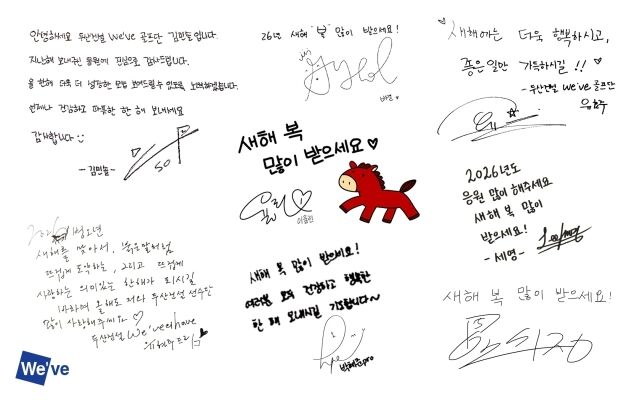 안녕하세요 두산건설 We've 골프단 김민솔입니다.
지난해 보내주신 응원에 진심으로 감사드립니다.
올 한해 더욱 더 성장한 모습 보여드릴 수 있도록 노력하겠습니다.
언제나 건강하고 따뜻한 한 해 보내세요
감사합니다
- 김민솔 -
50
26년 새해 "복" 많이 받으세요!
새해에는 더욱 행복하시고,
좋은 일만 가득하시길!!
- 두산건설 We've 골프단
유효주
새해 복
많이 받으세요
이율린
2026년도
응원 많이 해주세요
새해 복 많이
받으세요!
- 세영 -
2026 병오년
새해를 맞아서, 붉은말처럼
뜨겁게 도약하는, 그리고 뜨겁게
사랑하는 의미있는 한해가 되시길
바라며 올해도 저와 두산건설 선수단
많이 사랑해주세요
두산건설 We've
유현주 프로
새해 복 많이 받으세요!
여러분 모두 건강하고 행복한
한 해 보내시길 기도합니다~
박혜준pro
새해 복 많이 받으세요!
We've